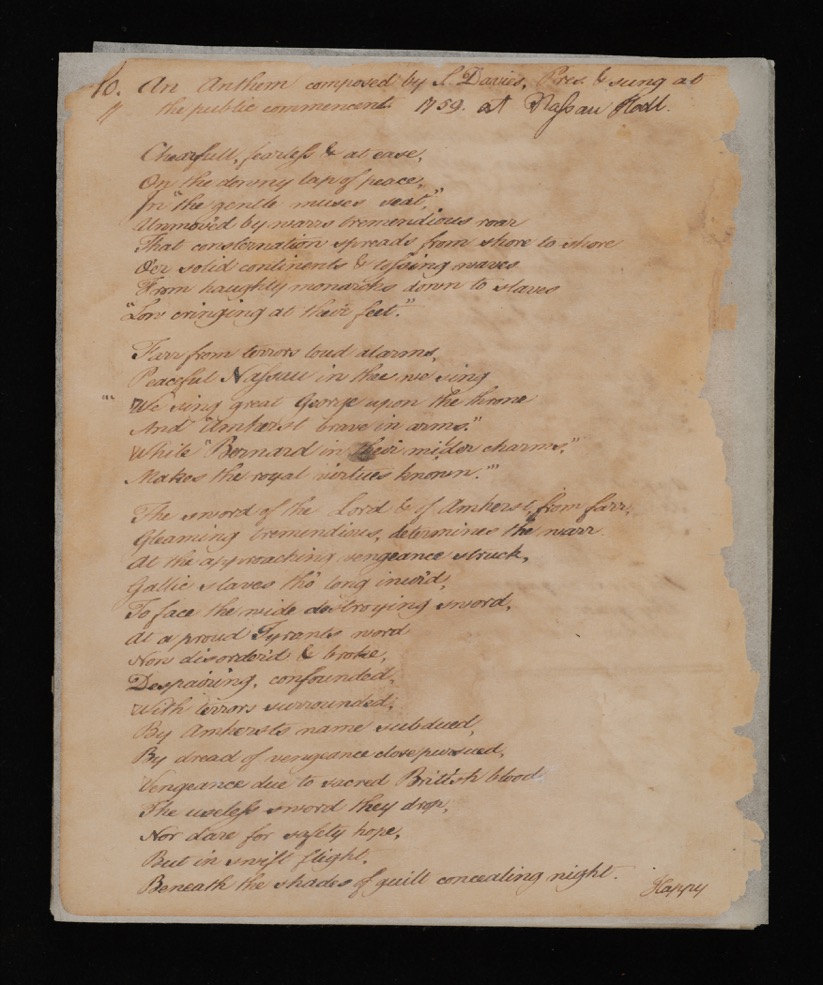 10. An Anthem composed by S. Davies, Pres. & sung at
the public commencent 1759. at Nassau Hall.
Chearfull, fearless & at ease,
On the downy lap of peace,
In "the gentle muses seat,"
Unmoved by warrs tremendious roar
That consternation spreads from shore to shore
Oer solid continents & tossing waves
From haughty monarchs down to slaves
"Low cringing at their feet."
Farr from terrors loud alarms,
Peaceful Nassau in thee we sing
"" We sing great George upon the throne
And "Amherst brave in arms."
While "Bernard in their milder charms,"
Makes the royal virtues known."'
The sword of the Lord & of Amherst from farr,
Gleaming tremendious, determines the warr.
At the approaching vengeance struck,
Gallic slaves tho' long inur'd,
To face the wide destroying sword,
At a proud Tyrants word
Now disorderd & broke,
Despairing, confounded,
With terrors surrounded;
By Amhersts name subdued,
By dread of vengeance close pursued,
Vengeance due to sacred British blood
The useless sword they drop,
Nor dare for safety hope,
But in swift flight,
Beneath the shades of guilt concealing night.
Happy